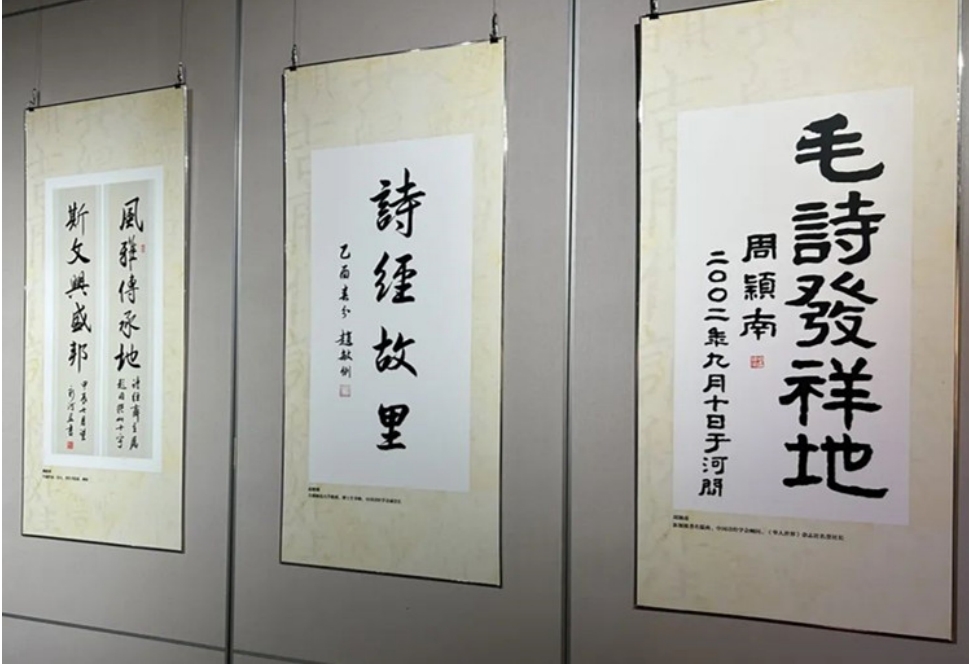 風雅傳承地
斯文興盛邦
詩經故里
乙酉春分 趙敏俐
毛詩發祥地
周穎南
二〇〇二年九月十日于河間